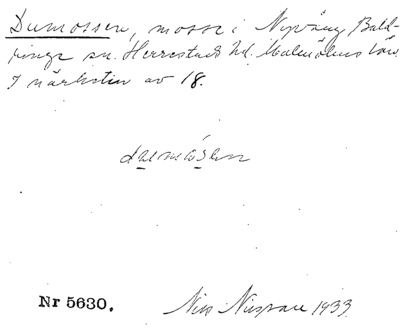 Dumossen, mosse i Nyvång Bald-
ringe sn. Herrestads hd. Malmöhus län.
I närheten av 18.
Nr 5630. Nils 1933.